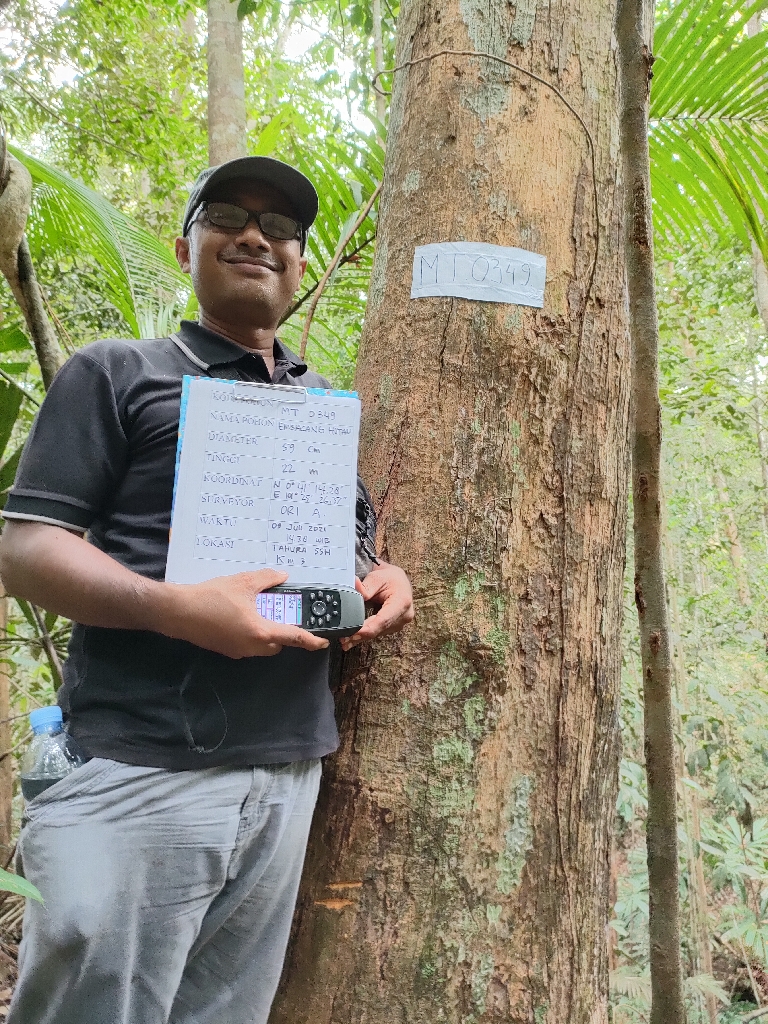 MT 0349
KODE POHON MT 0349
NAMA POHON EMBACANG HUTAN
DIAMETER 59 Cm
TINGGI 22 m
KOORDINAT N 0° 41'
E 101°
SURVEYOR ORI A
WAKTU JUN 2021
1430 WIB
LOKASI TAHURA SSH
Km